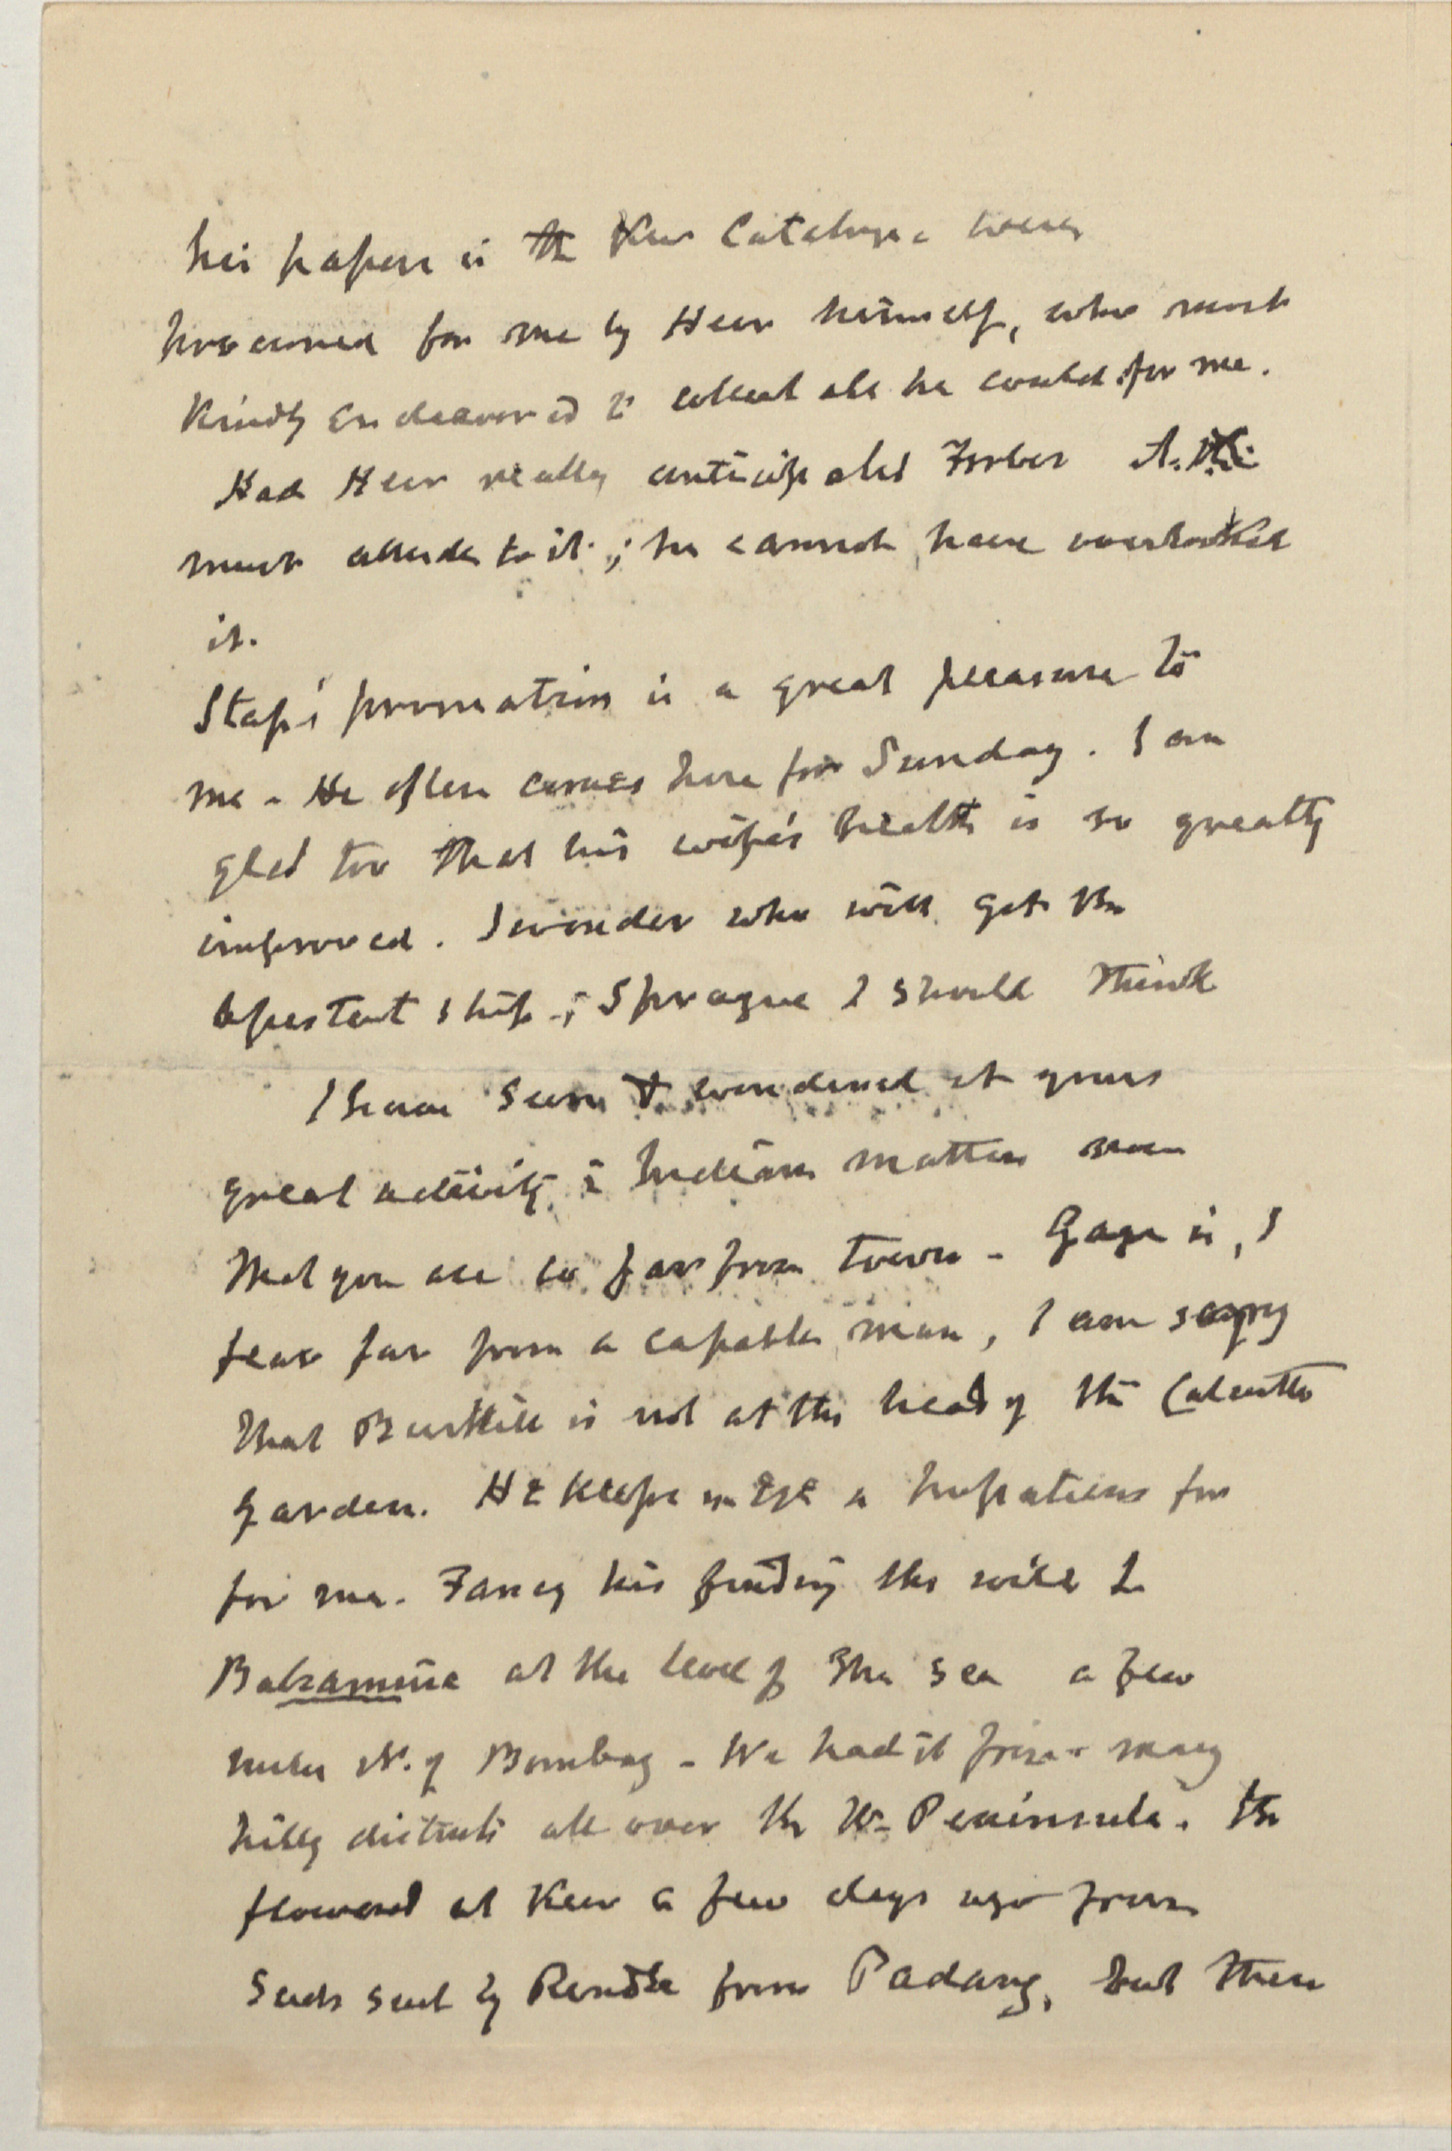 his papers in the Kew Catalogue were
procured for me by Heer himself, who most
kindly endeavored to collect all he could for me.
Had Heer really anticipated Forbes
must allude to it; he cannot have overlooked
it.
Stapf's promotion is a great pleasure to
me - He often comes here for Sunday. I am
glad too that his wife's health is so greatly
improved. I wonder who will get the
Assistant ship -; Sprague I should think
I have seen & wondered at your
great activity in Indian matters now
that you are so far from town - Gage is, I
fear far from a capable man, I am sorry
that Burkill is not at the head of the Calcutta
Garden. He keeps an eye a Impatiens for
for me. Fancy his finding the wild I.
Balsamina at the level of the sea a few
miles N. of Bombay - We had it from many
hilly districts all over the W. Peninsula. It
flowered at Kew a few days ago from
seeds sent by from Padang, but these